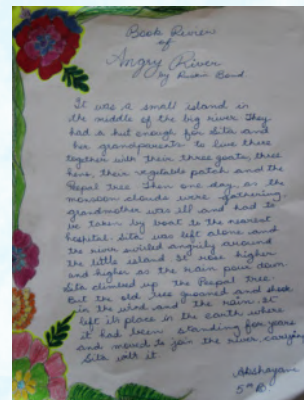 Book Review
of
Angry River
by Ruskin Bond
It was a small island in
the middle of the big river. They
had a hut enough for Sita and
her grandparents to live there
together with their three goats, three
hens, their vegitable patch and the
Peepal tree. Then one day, as the
monsoon clouds were gathering.
grandmother was ill and had to
be taken by boat to the nearest
hospital. Sita was left alone and
the river swirled angrily around
the little island. It rose higher
and higher as the rain pour down.
Sita climbed up the Peepal tree.
But the old tree groaned and shook
in the wind and the rain. It
left its place in the earth where
it had been standing for years
and moved to join the river, carrying
Sita with it.
Akshayani
5th B.